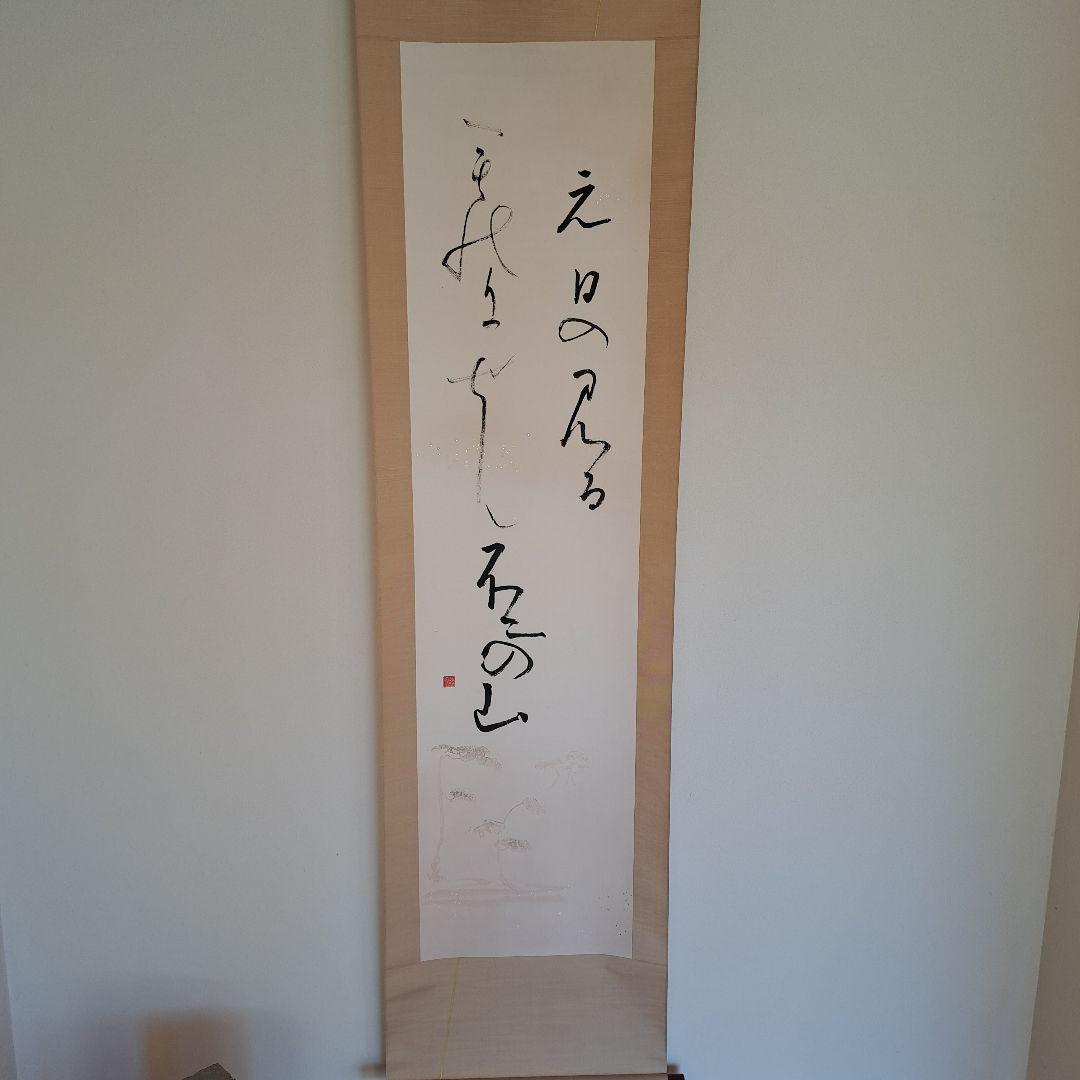 元日の見る
ものにせん不二の山